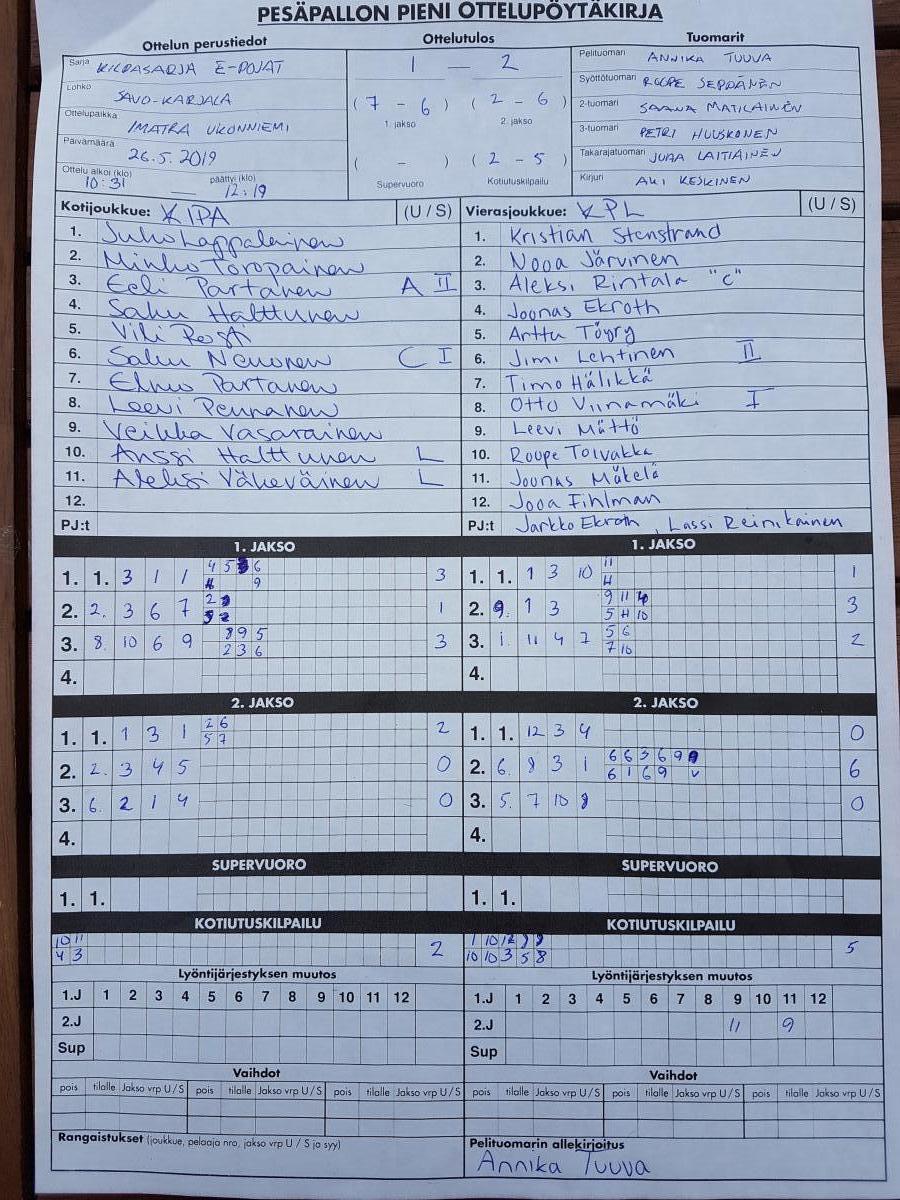 PESÄPALLON PIENI OTTELUPÖYTÄKIRJA
Ottelun perustiedot
Sarja KILPASARJA E-POJAT
Lohko SAVO-KARJALA
Ottelupaikka IMATRA UKONNIEMI
Päivämäärä 26.5.2019
Ottelu alkoi (klo) päättyi (klo)
10:31 — 12.19
Ottelutulos
1 — 2
(7 - 6) (2 - 6)
1. jakso 2. jakso
( - ) (2 - 5)
Supervuoro Kotiutuskilpailu
Tuomarit
Pelituomari ANNIKA TUUVA
Syöttötuomari ROOPE SEPPÄNEN
2-tuomari SAANA MATILAINEN
3-tuomari PETRI HUUSKONEN
Takarajatuomari JUHA LAITIAINEN
Kirjuri AKI KESKINEN
Kotijoukkue: KIPA (U / S)
1. Juho Lappalainen
2. Minko Toropainen
3. Eeli Partanen A II
4. Saku Halttunen
5. Vili
6. Saku Nenonen C I
7. Elmo Partanen
8. Leevi Pennanen
9. Veikka Vasarainen
10. Anssi Halttunen L
11. Aleksi Väheväinen L
12.
PJ:t
Vierasjoukkue: KPL (U / S)
1. Kristian Stenstrand
2. Nooa Järvinen
3. Aleksi Rintala "C"
4. Joonas Ekroth
5. Arttu Töyry
6. Jimi Lehtinen II
7. Timo Hälikkä
8. Otto Viinamäki I
9. Leevi Mättö
10. Roope Toivakka
11. Joonas Mäkelä
12. Jooa Fihlman
PJ:t Jarkko Ekroth, Lassi Reinikainen
1. JAKSO
1. 1. 3 1 1 4 5 6 3
9
2. 2. 3 6 7 2 1
3. 8. 10 6 9 8 9 5 3
2 3 6
4.
2. JAKSO
1. 1. 1 3 1 2 6 2
5 7
2. 2. 3 4 5 0
3. 6. 2 1 4 0
4.
SUPERVUORO
1. 1.
KOTIUTUSKILPAILU
10 11 2
4 3
Lyöntijärjestyksen muutos
1.J 1 2 3 4 5 6 7 8 9 10 11 12
2.J
Sup
Vaihdot
pois tilalle Jakso vrp U / S pois tilalle Jakso vrp U / S pois tilalle Jakso vrp U / S
Rangaistukset (joukkue, pelaaja nro, jakso vrp U / S ja syy)
1. JAKSO
1. 1. 1 3 10 11 1
4
2. 9. 1 3 9 11 3
5 4 10
3. 1. 11 4 7 5 6 2
7 10
4.
2. JAKSO
1. 1. 12 3 4 0
2. 6. 8 3 1 6 6 3 6 9 6
6 1 6 9 v
3. 5. 7 10 8 0
4.
SUPERVUORO
1. 1.
KOTIUTUSKILPAILU
1 10 12 5
10 10 3 5 8
Lyöntijärjestyksen muutos
1.J 1 2 3 4 5 6 7 8 9 10 11 12
2.J 11 9
Sup
Vaihdot
pois tilalle Jakso vrp U / S pois tilalle Jakso vrp U / S pois tilalle Jakso vrp U / S
Pelituomarin allekirjoitus
Annika Tuuva